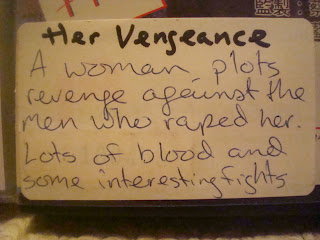 Her Vengeance
A woman plots
revenge against the
men who raped her.
Lots of blood and
some interesting fights